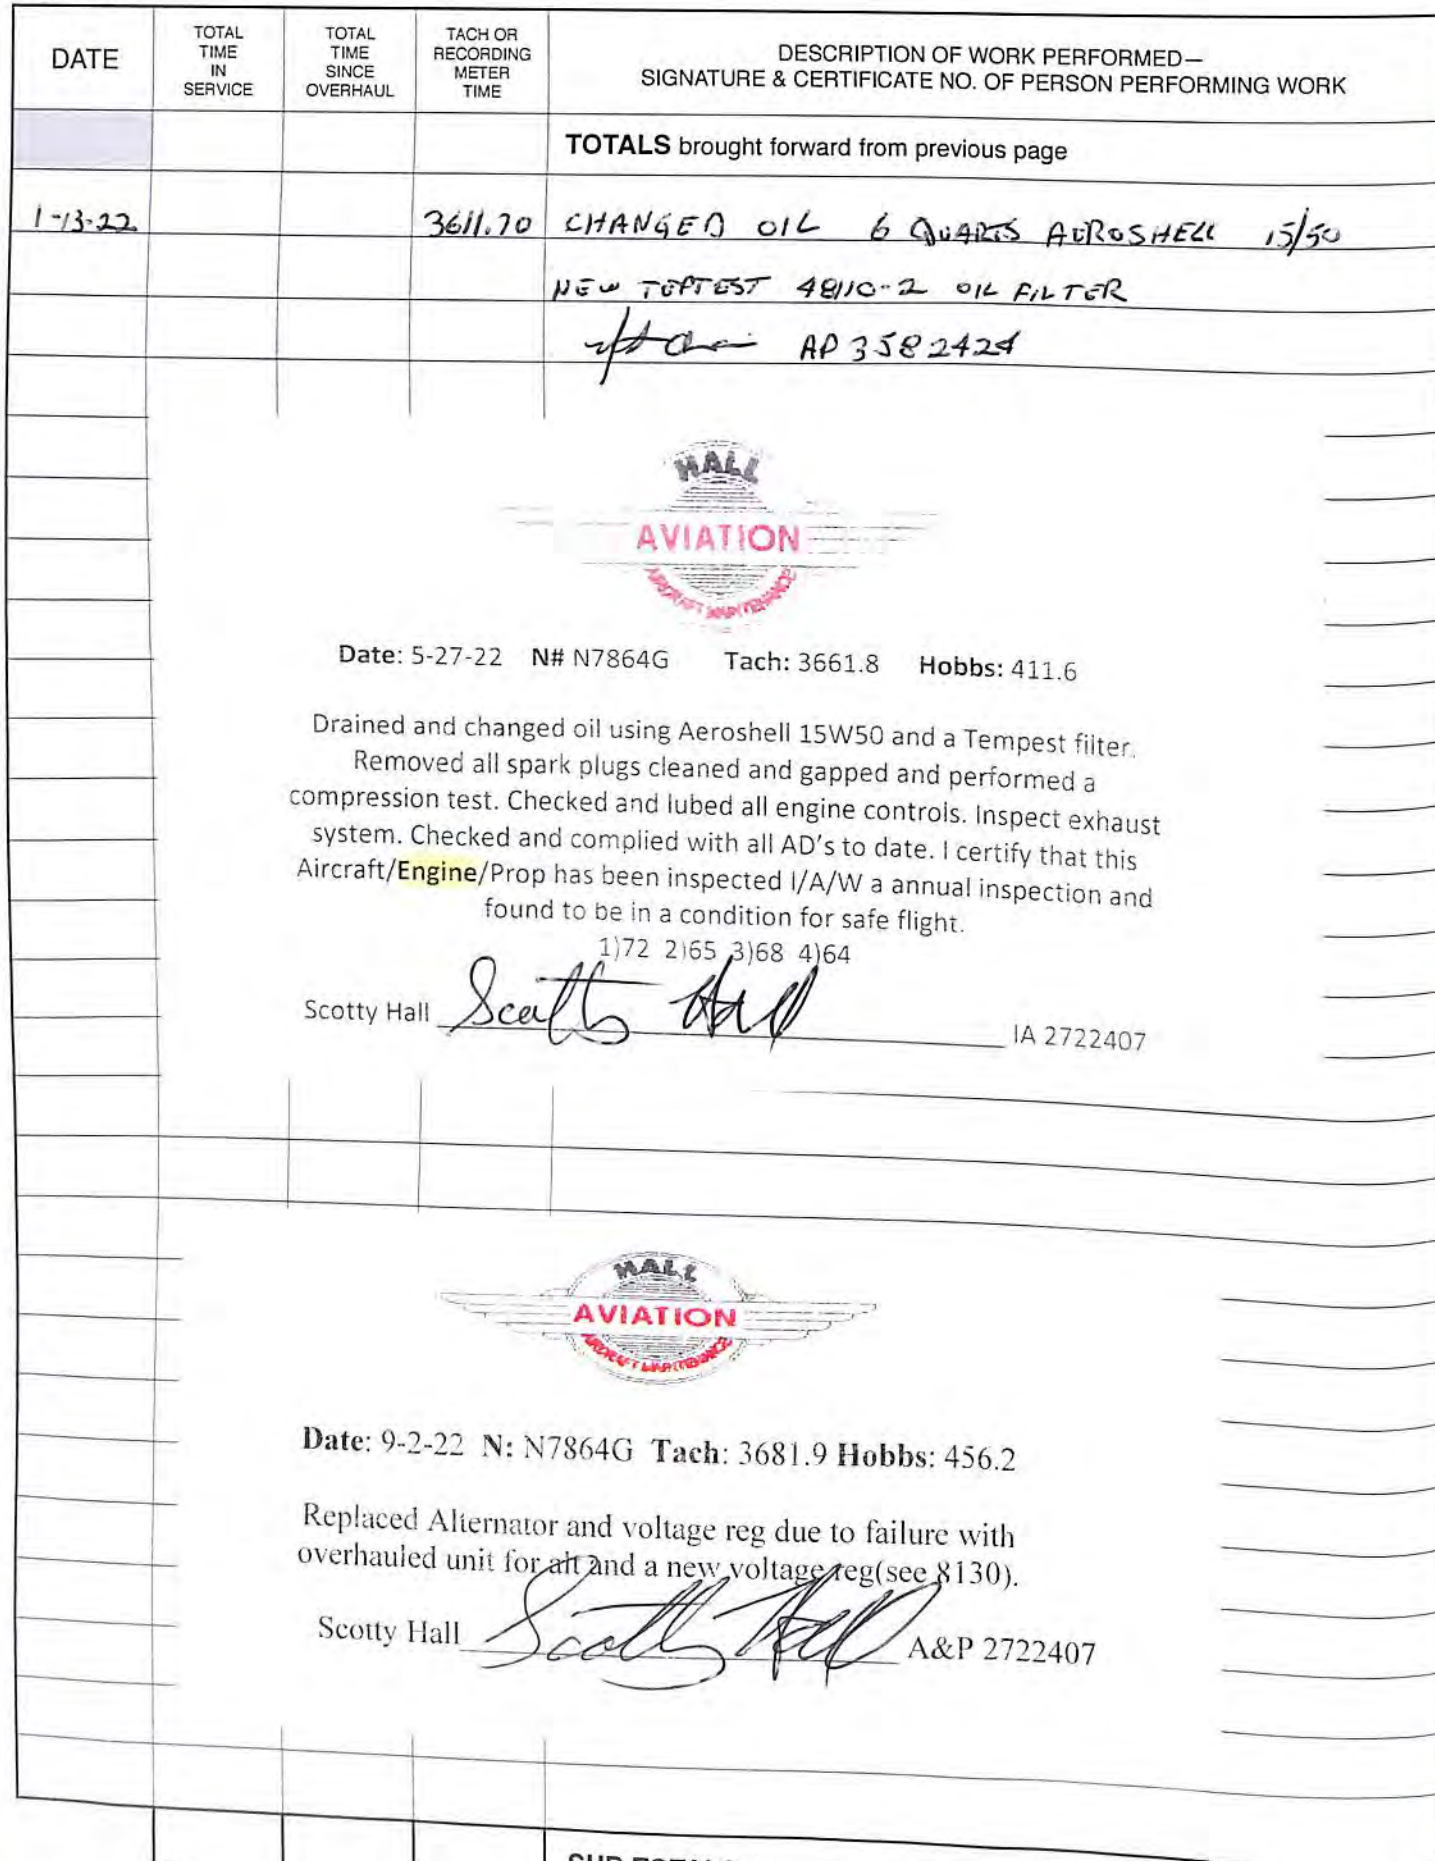 DATE
TOTAL TIME IN SERVICE
TOTAL TIME SINCE OVERHAUL
TACH OR RECORDING METER TIME
DESCRIPTION OF WORK PERFORMED—
SIGNATURE & CERTIFICATE NO. OF PERSON PERFORMING WORK
TOTALS brought forward from previous page
1-13-22 3611.70 CHANGED OIL 6 QUARTS AEROSHELL 15/50
NEW 48110-2 OIL FILTER
AP 3582424
HALL
AVIATION
AIRCRAFT MAINTENANCE
Date: 5-27-22 N# N7864G Tach: 3661.8 Hobbs: 411.6
Drained and changed oil using Aeroshell 15W50 and a Tempest filter.
Removed all spark plugs cleaned and gapped and performed a
compression test. Checked and lubed all engine controls. Inspect exhaust
system. Checked and complied with all AD's to date. I certify that this
Aircraft/Engine/Prop has been inspected I/A/W a annual inspection and
found to be in a condition for safe flight.
1)72 2)65 3)68 4)64
Scotty Hall Scotty Hall IA 2722407
HALL
AVIATION
AIRCRAFT MAINTENANCE
Date: 9-2-22 N: N7864G Tach: 3681.9 Hobbs: 456.2
Replaced Alternator and voltage reg due to failure with
overhauled unit for alt and a new voltage reg(see 8130).
Scotty Hall Scotty Hall A&P 2722407